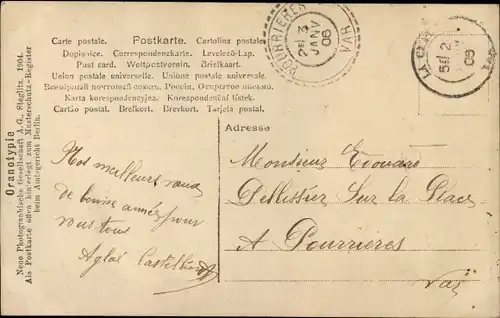 Carte postale. Postkarte. Cartolina postale.
Dopisnice. Correspondenzkarte. Levelező-Lap.
Post card. Weltpostverein. Briefkaart.
Union postale universelle. Unione postale universale.
Всемірный почтовый союзъ. Россія. Открытое письмо.
Karta korespondencyjna. Korespondenční lístek.
Cartão postal. Brefkort. Brevkort. Tarjeta postal.
POURRIERES
23 JANV 06
VAR
LA
2
06
Oranotypie
Neue Photographische Gesellschaft A.G., Steglitz. 1904.
Als Postkarte oben hinterlegt zum Musterschutz-Register
beim Amtsgericht Berlin.
Adresse
Nos meilleurs vœux
de bonne année pour
vous tous
Aglaé
Monsieur Edouard
Pellissier Sur la Place
A Pourrieres
Var